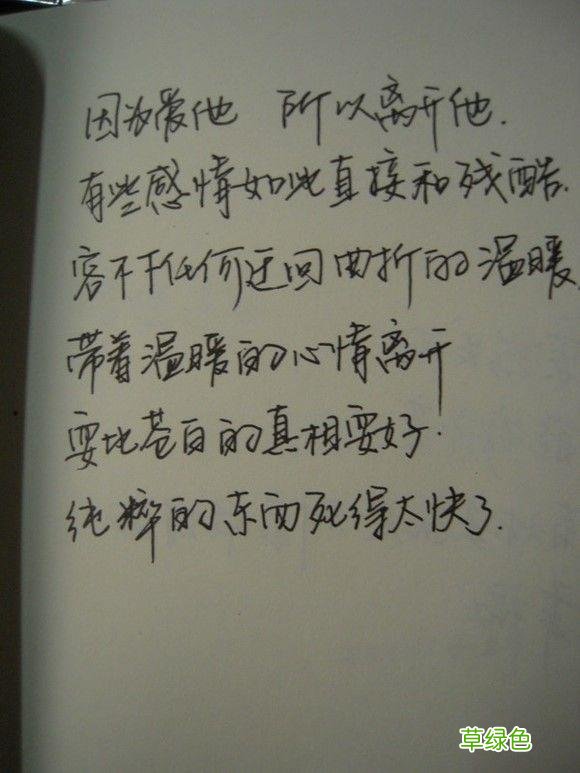 因为爱他 所以离开他.
有些感情如此直接和残酷.
容不下任何迂回曲折的温暖.
带着温暖的心情离开
要比苍白的真相要好.
纯粹的东西死得太快了.
草绿色